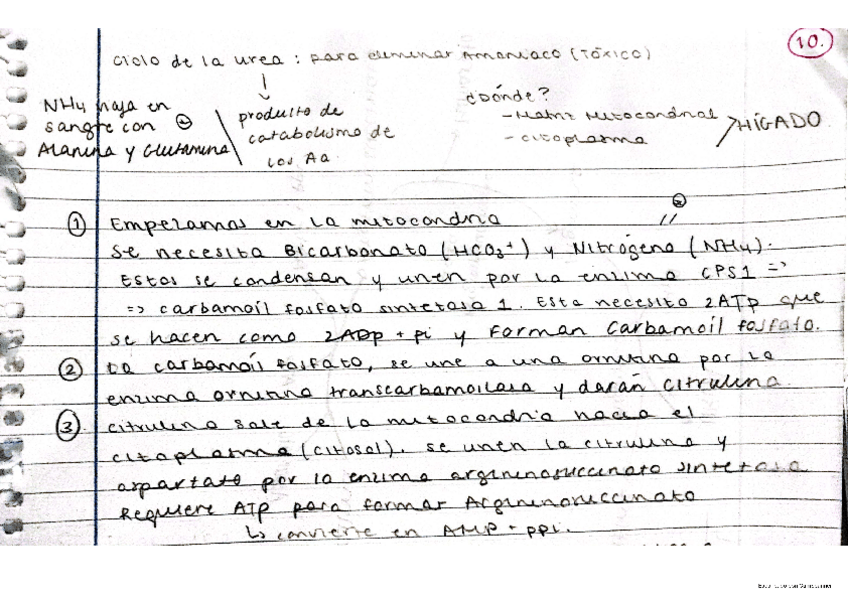 10.
Ciclo de la urea : para eliminar Amoniaco (Tóxico)
NH4 viaja en
sangre con
Alanina y Glutamina
producto de
catabolismo de
los Aa.
¿Dónde?
- Matriz Mitocondrial
- citoplasma
HÍGADO
① Empezamos en la mitocondria
Se necesita Bicarbonato (HCO3+) y Nitrógeno (NH4).
Estos se condensan y unen por la enzima CPS1 =>
=> carbamoíl fosfato sintetasa 1. Esta necesita 2ATP que
se hacen como 2ADP + pi y Forman Carbamoíl fosfato.
② La carbamoíl fosfato, se une a una ornitina por la
enzima ornitina transcarbamoilasa y darán citrulina
③ citrulina sale de la mitocondria hacia el
citoplasma (citosol). se unen la citrulina y
aspartato por la enzima argininosuccinato sintetasa
Requiere ATP para formar Argininosuccinato
↳ convierte en AMP + ppi.